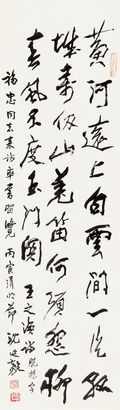 黃河遠上白雲間一片孤
城萬仞山羌笛何須怨柳
春風不度玉門關 王之渙詩 脫楊字
福忠同志來訪書留覽 丙寅清明節 沈延毅